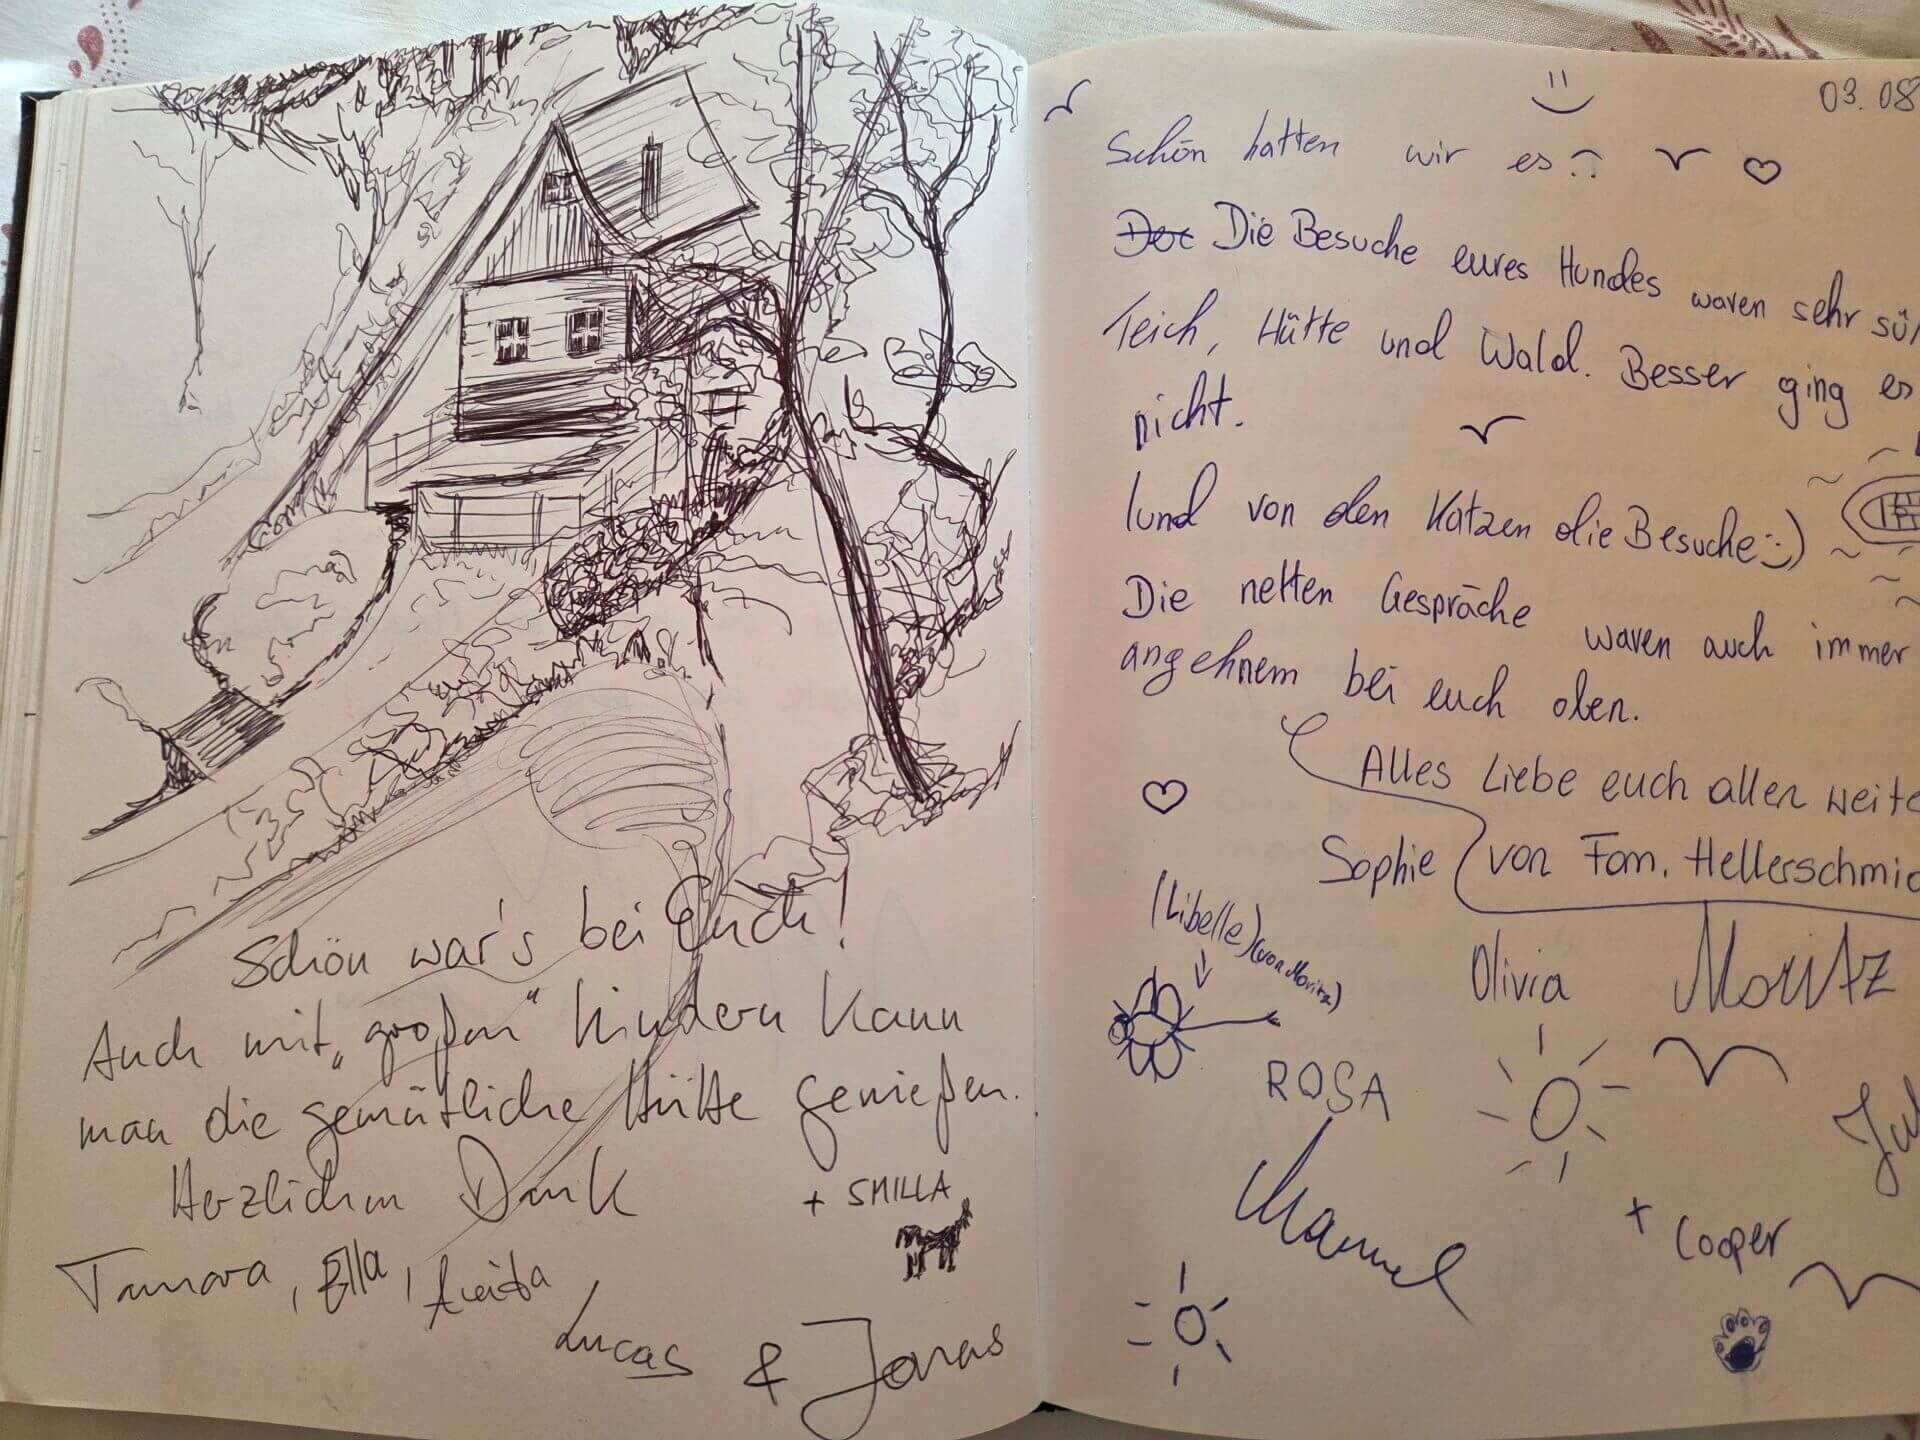 Schön war's bei Euch!
Auch mit „großen" Kindern kann
man die gemütliche Hütte genießen.
Herzlichen Dank
+ SMILLA
Tamara, Ella,
Lucas & Jonas
03.08
Schön hatten wir es
Der Die Besuche eures Hundes waren sehr
Teich, Hütte und Wald. Besser ging es
nicht.
(und von den Katzen die Besuche :-)
Die netten Gespräche waren auch immer
angehnem bei euch oben.
Alles Liebe euch allen
Sophie von Fam.
(Libelle) (von Moritz)
Olivia Moritz
ROSA
Manuel
+ Cooper